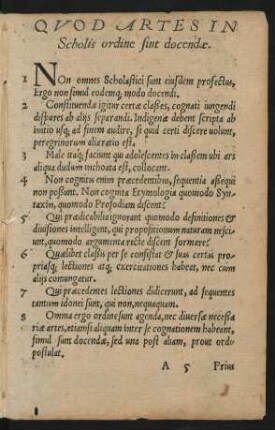 QVOD ARTES IN
Scholis ordine sint docendæ.
1 NOn omnes Scholastici sunt eiusdem profectus,
Ergo non simul eodemq; modo docendi.
2 Constituendæ igitur certæ classes, cognati iungendi
dispares ab alijs separandi. Indigenæ debent scripta ab
initio usq; ad finem audire, si quid certi discere uolunt,
peregrinorum alia ratio est.
3 Male itaq; faciunt qui adolescentes in classem ubi ars
aliqua dudum inchoata est, collocant.
4 Non cognitis enim præcedentibus, sequentia assequi
non possunt. Non cognita Etymologia quomodo Syn-
taxim, quomodo Prosodiam discent:
5 Qui prædicabilia ignorant quomodo definitiones &
diuisiones intelligent, qui propositionum naturam nesci-
unt, quomodo argumenta recte discent formare?
6 Quælibet classis per se consistat & suas certas pro-
priasq; lectiones atq; exercitationes habeat, nec cum
alijs coniungatur.
7 Qui præcedentes lectiones didicerunt, ad sequentes
tantum idonei sunt, qui non, nequaquam.
8 Omnia ergo ordine sunt agenda, nec diuersæ necessa-
riæ artes, etiamsi aliquam inter se cognationem habeant,
simul sunt docendæ, sed una post aliam, prout ordo
postulat.
A 5 Prius